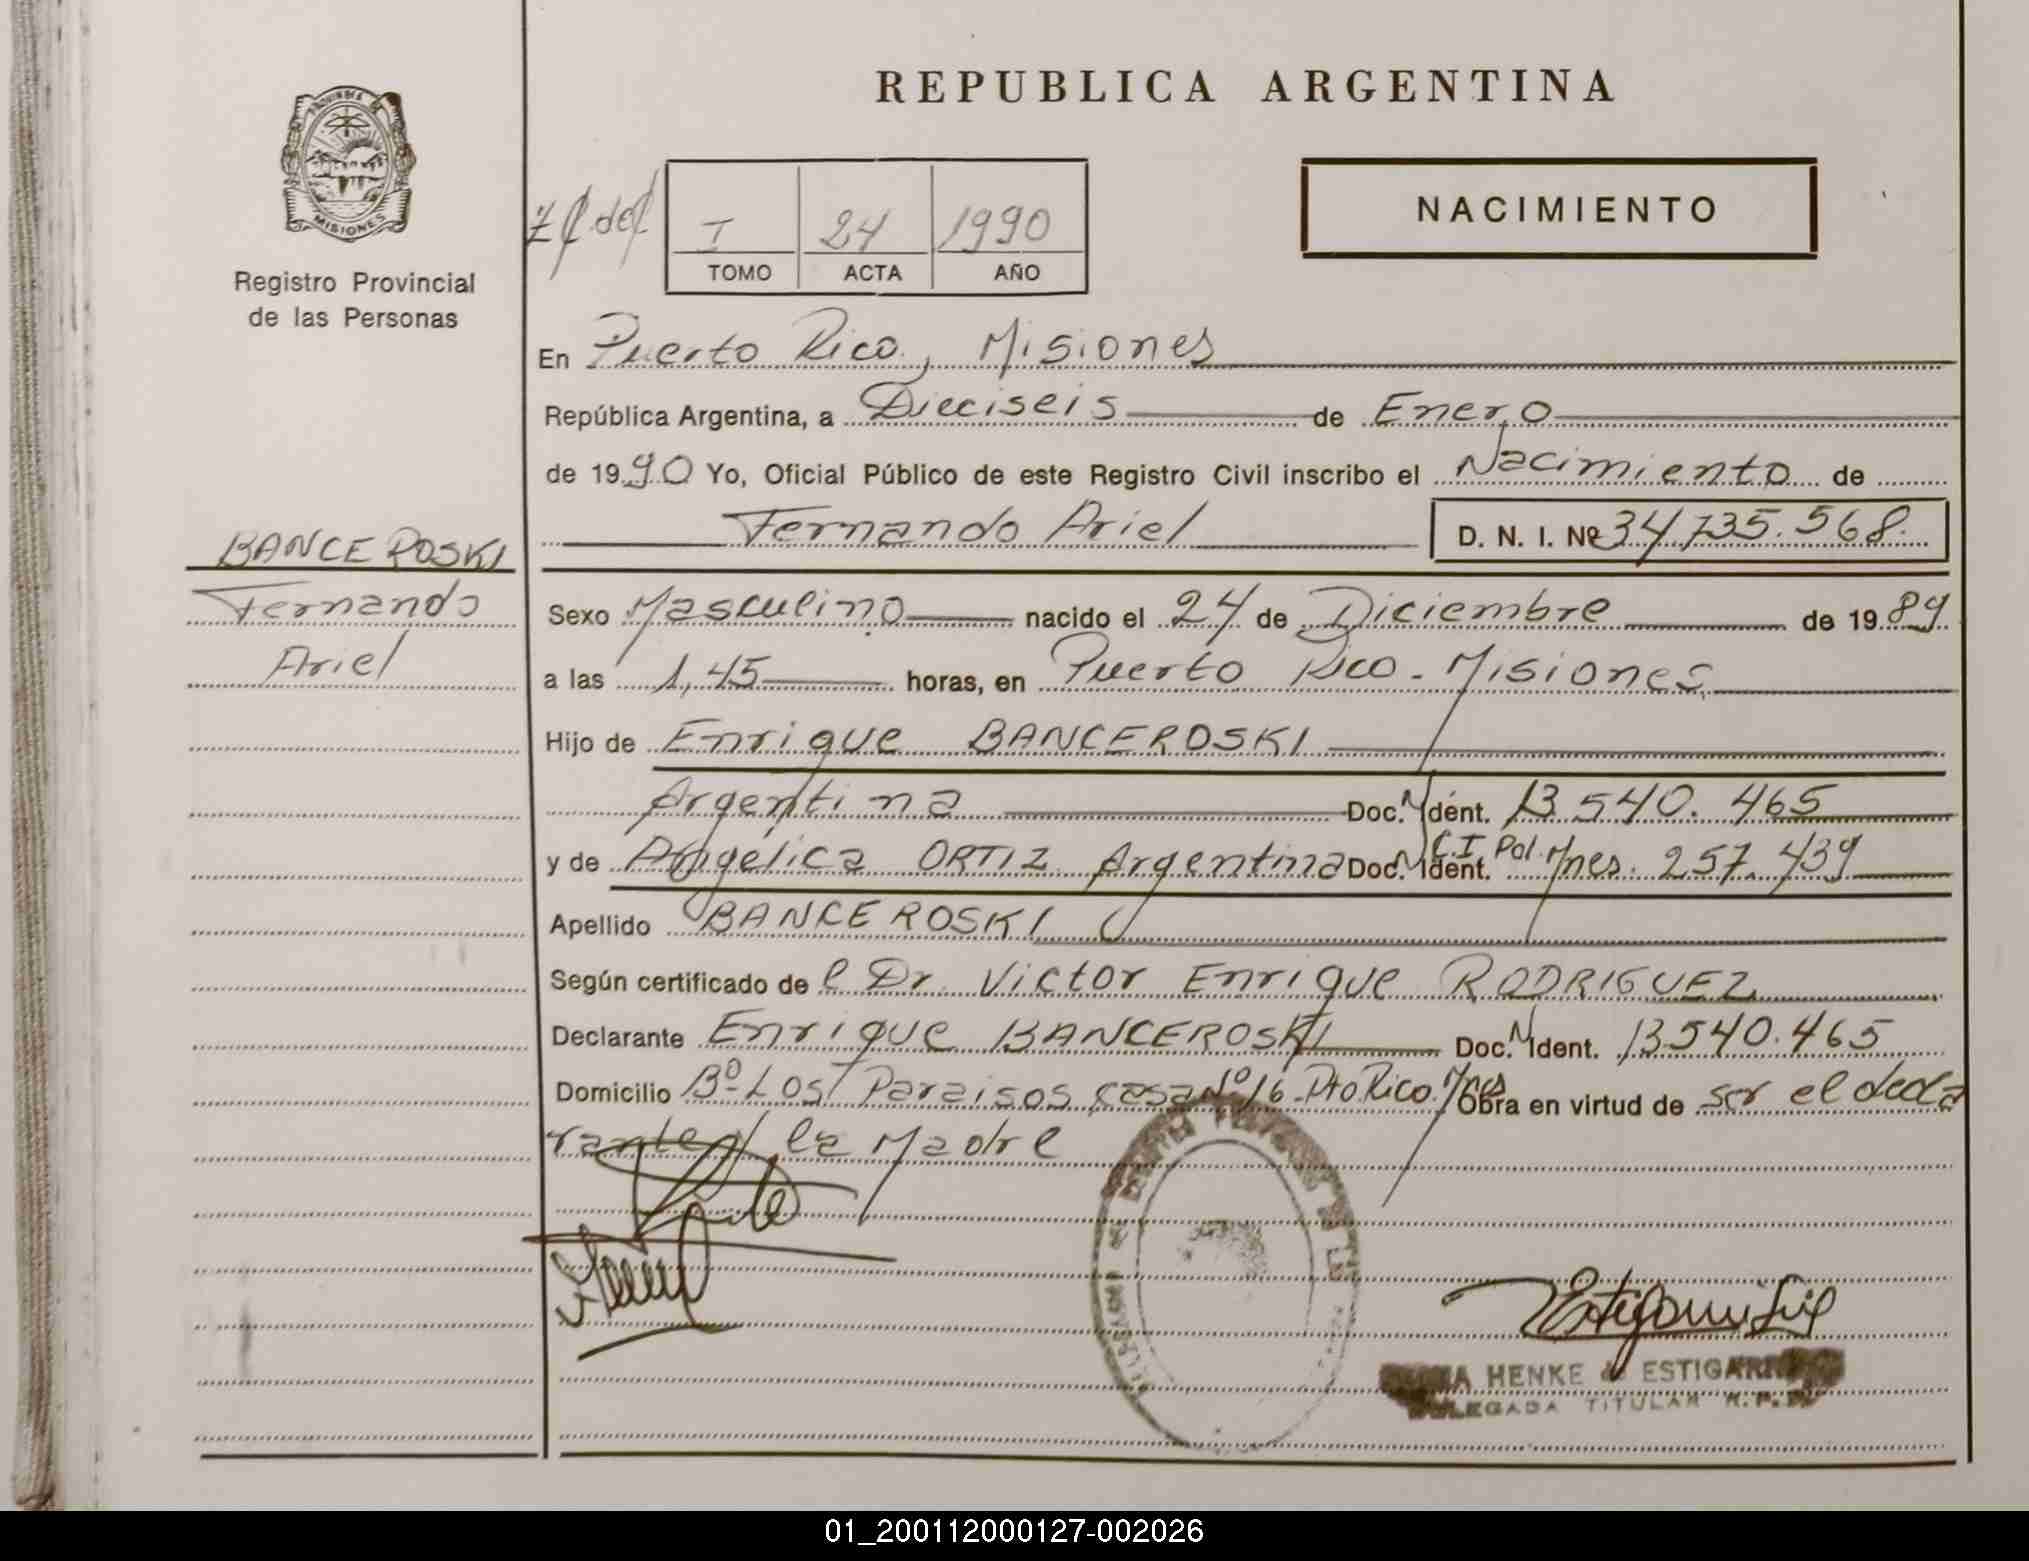 REPUBLICA ARGENTINA
PROVINCIA
MISIONES
Registro Provincial
de las Personas
NACIMIENTO
I 24 1990
TOMO ACTA AÑO
En Puerto Rico, Misiones
República Argentina, a Dieciseis de Enero
de 1990 Yo, Oficial Público de este Registro Civil inscribo el Nacimiento de
Fernando Ariel D. N. I. Nº 34.735.568.
BANCEROSKI
Fernando
Ariel
Sexo Masculino nacido el 24 de Diciembre de 1989
a las 1,45 horas, en Puerto Rico - Misiones
Hijo de Enrique BANCEROSKI
Argentina Doc. N Ident. 13.540.465
y de Angélica ORTIZ Argentina Doc. N Ident. C.I Pol. Mnes. 257.439
Apellido BANCEROSKI
Según certificado de l Dr. Victor Enrique RODRIGUEZ
Declarante Enrique BANCEROSKI Doc. N Ident. 13.540.465
Domicilio Bº Los Paraisos casa Nº 16 - Pto Rico. Mnes Obra en virtud de ser el decla
rante y la Madre
HENKE de ESTIGARRIBIA
DELEGADA TITULAR R.P.P.
01_200112000127-002026